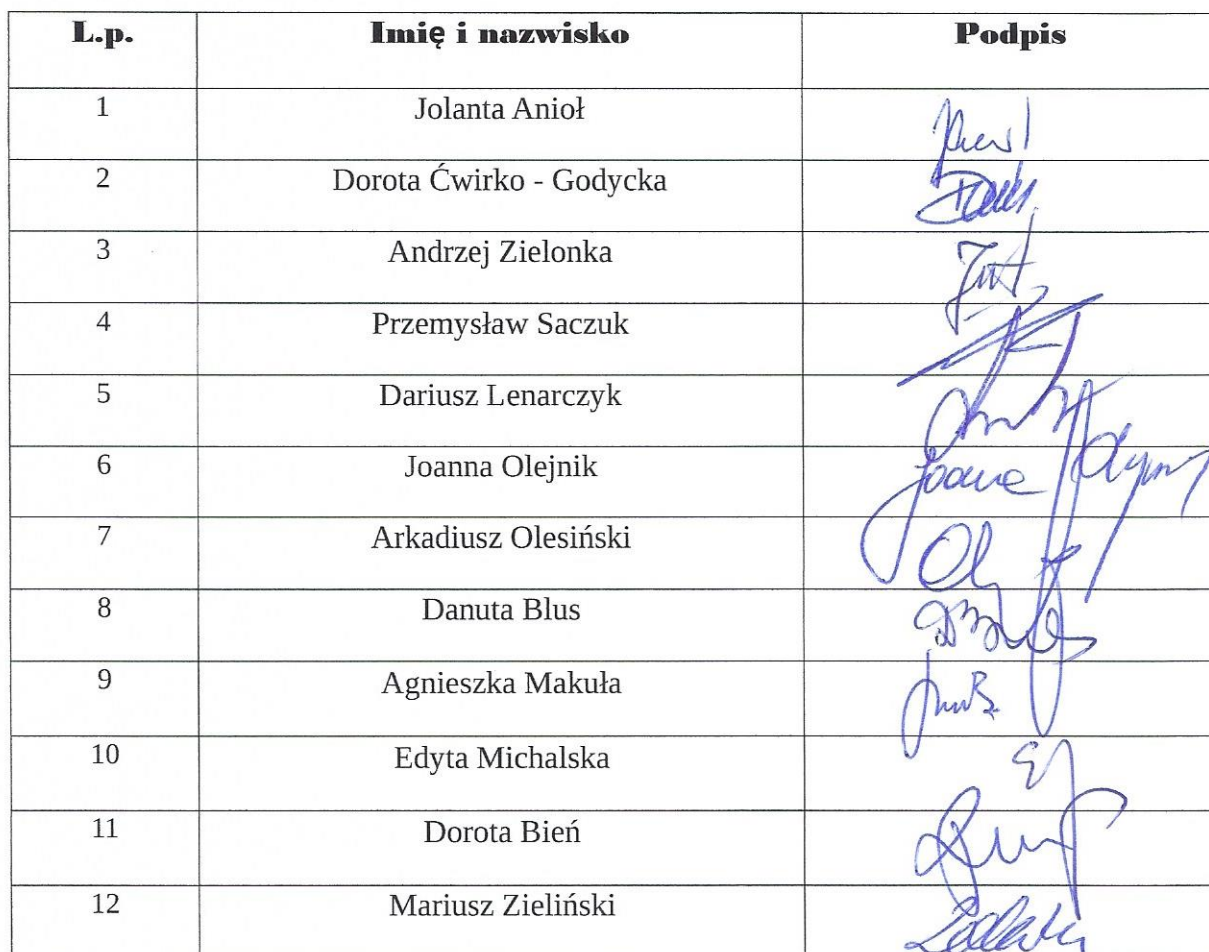 L.p. Imię i nazwisko Podpis
1 Jolanta Anioł
2 Dorota Ćwirko - Godycka
3 Andrzej Zielonka
4 Przemysław Saczuk
5 Dariusz Lenarczyk
6 Joanna Olejnik
7 Arkadiusz Olesiński
8 Danuta Blus
9 Agnieszka Makuła
10 Edyta Michalska
11 Dorota Bień
12 Mariusz Zieliński